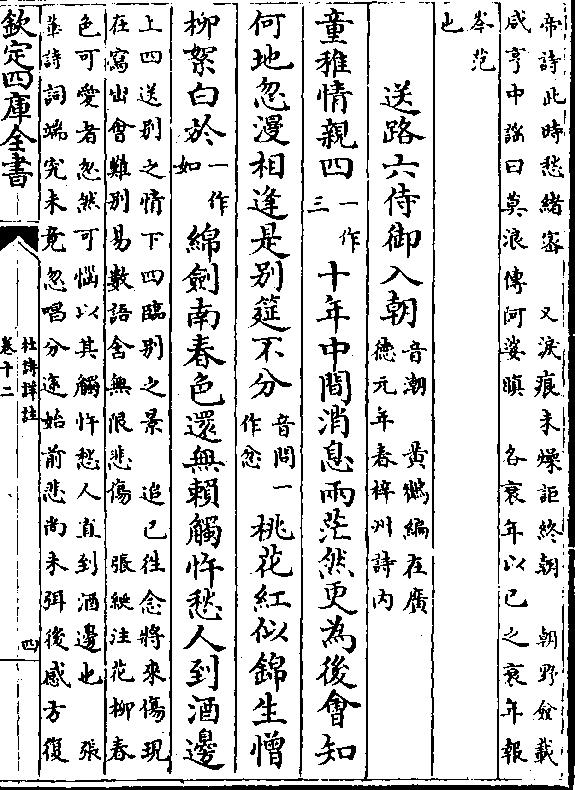 帝詩此時愁緒密　又淚痕未燥詎終朝　朝野僉載
咸亨中謡曰莫浪傳阿婆瞋　各衰年以已之衰年報
岑范
也
送路六侍御入朝
音潮　黄鶴編在廣
德元年春梓州詩内
童稚情親四一作三十年中間消息兩茫然更為後會知
何地忽漫相逢是别筵不分音問一作忿桃花紅似錦生憎
柳絮白於一作如綿劍南春色還無賴觸忤愁人到酒邊
上四送别之情下四臨别之景　追已徃念將來傷現
在寫出會難别易數語含無限悲傷　張綖注花柳春
色可愛者忽然可惱以其觸忤愁人直到酒邊也　張
華詩詞端究未竟忽唱分途始前悲尚未弭後感方復
欽定四庫全書
杜詩詳註
卷十二
四